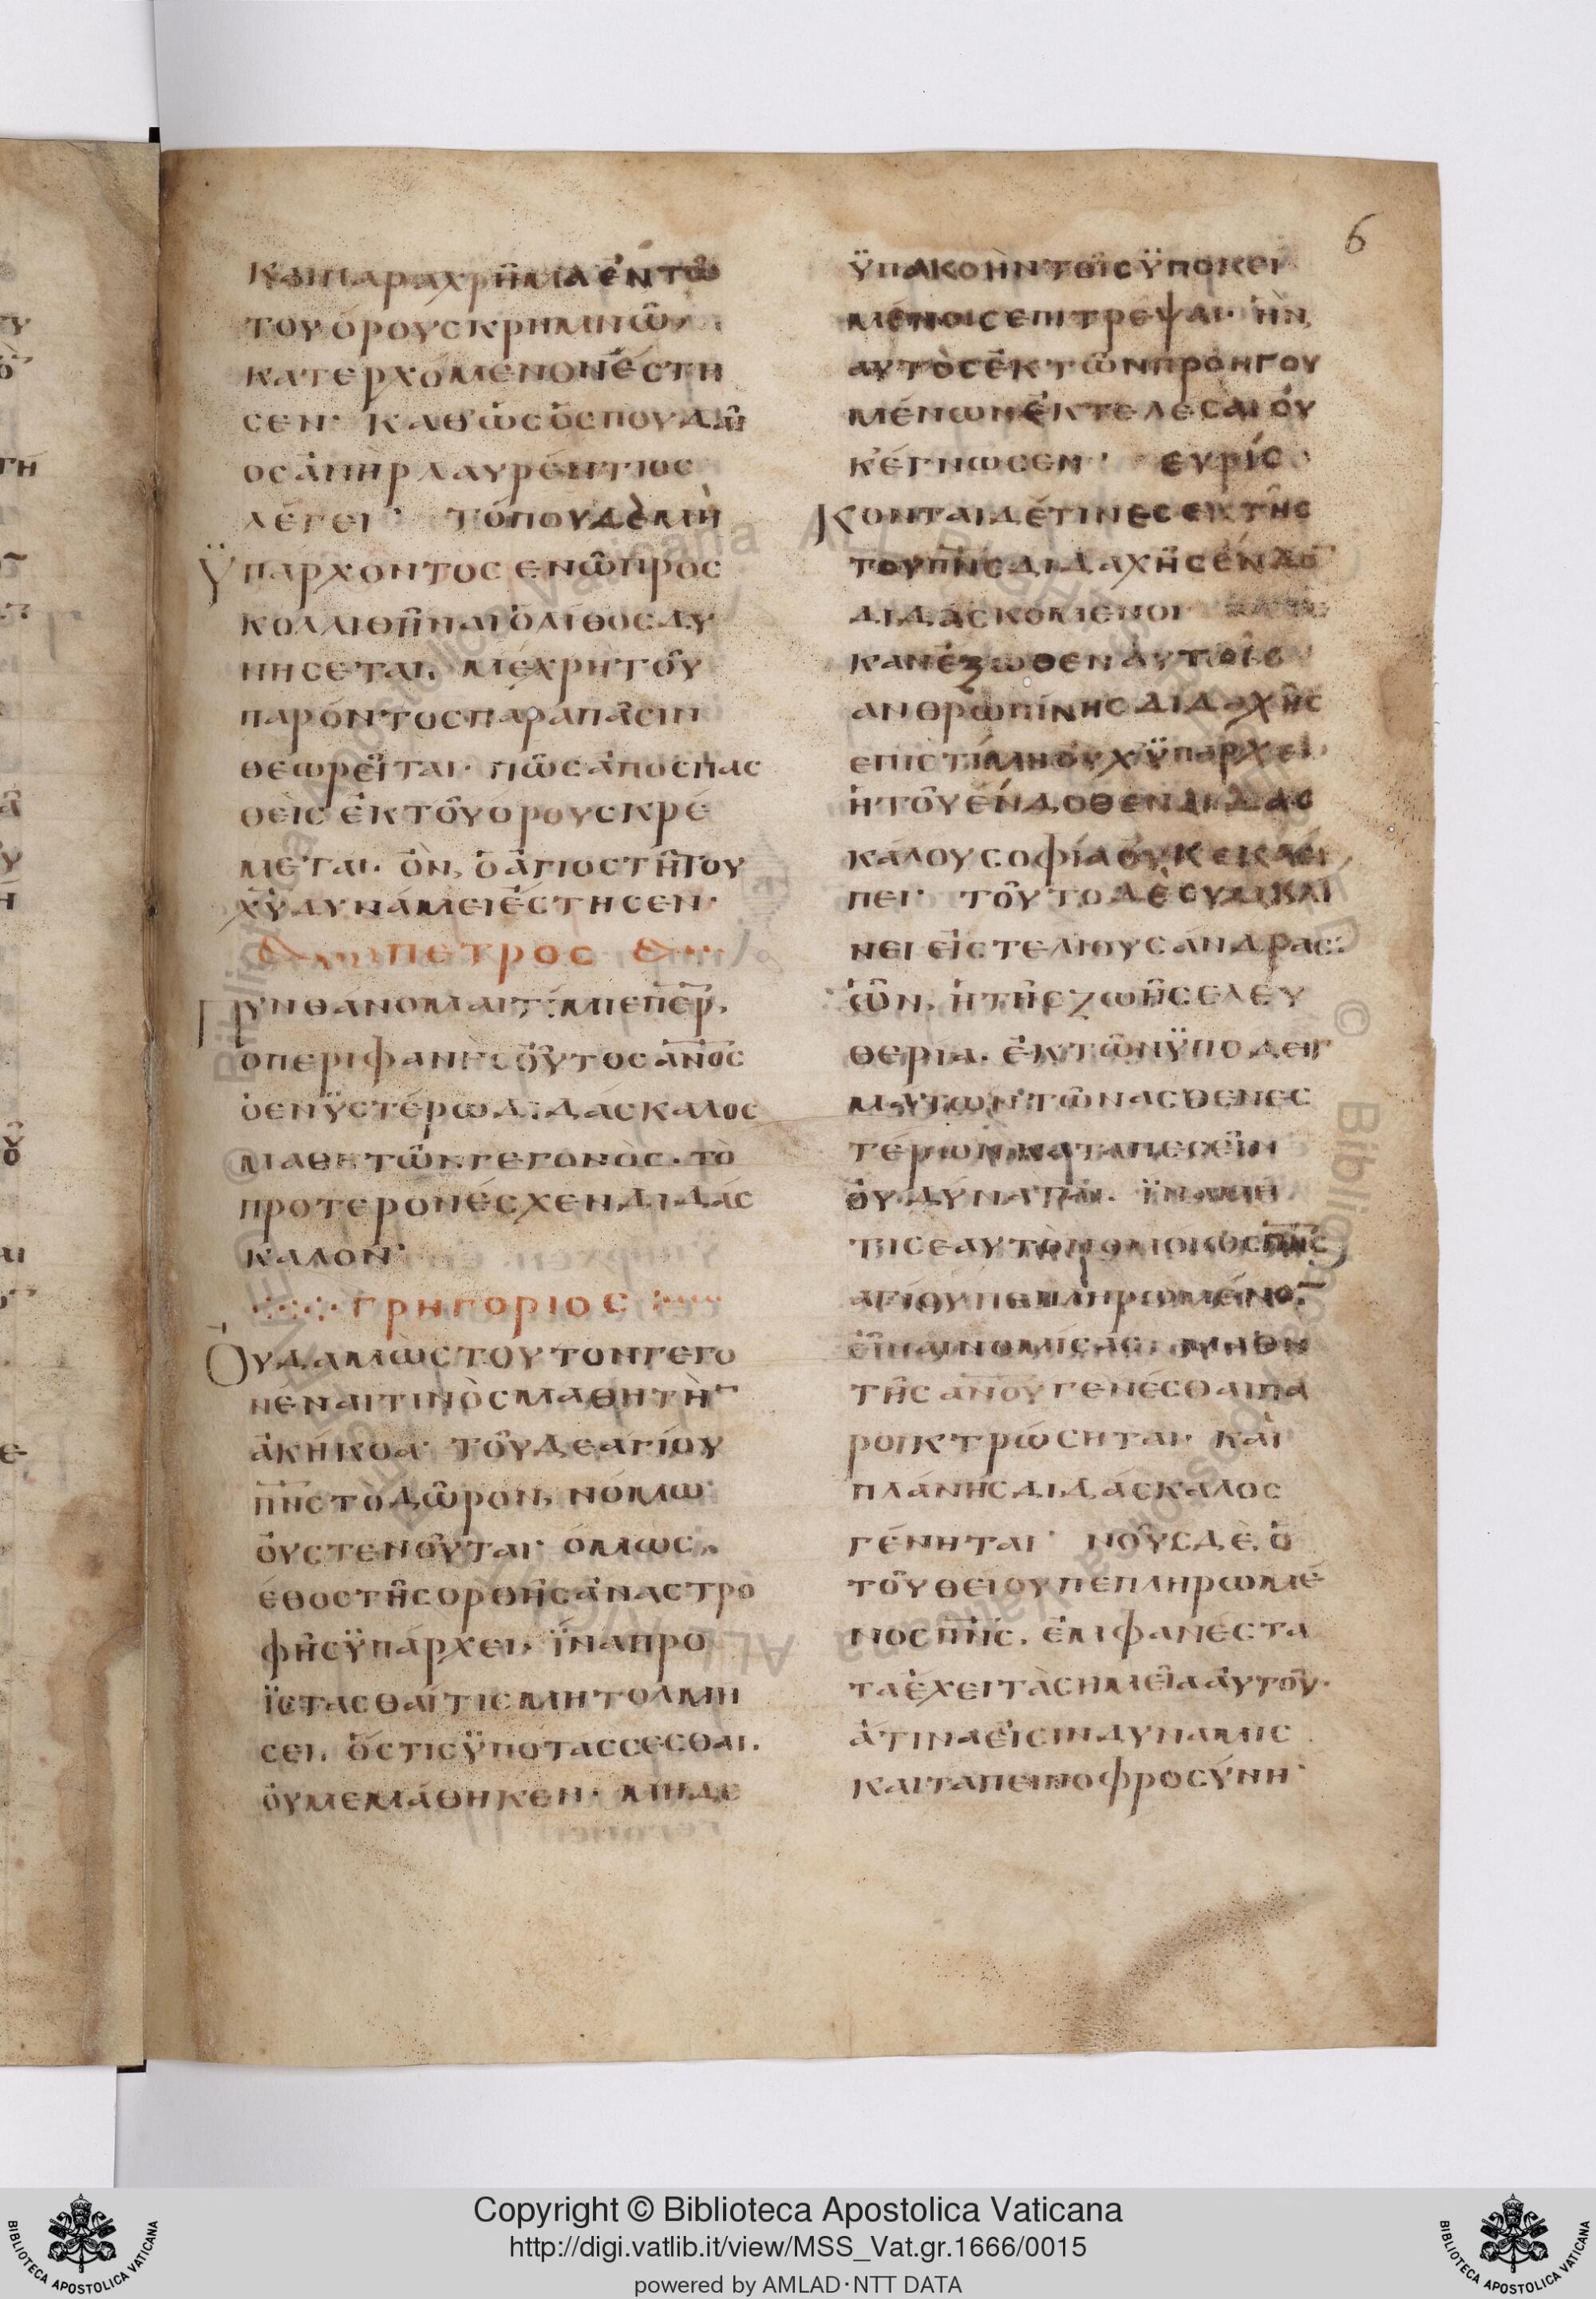 6
Κ(αι) παραχρῆμα ἐν τῶ
του όρους κρημνῶ
κατερχόμενον έστη
σεν· καθ'ὡς ὁ σπουδαῖ
ος ἀνὴρ λαυρέντιος
λέγει· τόπου δὲ μὴ
ϋπάρχοντος εν ὧ προς
κολλιθῆναι ὁ λίθος δυ
νησεται, μέχρη τοῦ
παρόντος παράπᾶσιν
θεωρεῖται· πῶς ἀποσπας
θεὶς ἐκ τοῦ όρους κρέ
μεται· ὃν, ὁ ἁγιος τῆ του
χῦ δυνάμει έστησεν·
πετρος
Πυνθάνομαι τίμιε πέρ,
ὁ περιφανὴς οὗτος ἀνος
ὁ εν ϋστέρω διδάσκαλος
μαθητῶν γεγονὸς· τὸ
προτερον έσχεν διδάσ
καλον·
γρηγοριος
Ὀυδαμὼς τουτον γεγο
νεναι τινὸς μαθητὴν
ἀκήκοα· τοῦ δε αγίου
πνς τὸ δῶρον, νόμω
ὀυ στενοῦται· όμως
έθος τῆς ορθῆς ἀναστρο
φῆς ϋπάρχει, ϊνα προ
ΐστασθαί τις μη τολμη
σει, ὅστις ϋποτασσεσθαι.
ὀυ μεμάθηκεν· μηδε
ϋπακοὴν τοῖς ϋποκει
μένοις επιτρέψαι· ἡν,
αυτὸς ἐκ τῶν προηγου
μένων ἐκτελέσαι ὀυ
κ'έγνωσεν· ευρίσ
Κονται δέ τινες εκ τῆς
του πνς διδαχῆς ένδοθεν
διδασκόμενοι
κἀν έξωθεν ἀυτοῖς
ανθρωπίνης διδαχῆς
επιστίμη ὀυχ ϋπάρχει·
ἡ τοῦ ένδοθεν διδας
κάλου σοφία ὀυκ εκλεί
πει· τοῦτο δὲ συμβαί
νει εἰς τελίους ἀνδρας·
ὧν, ἡ τῆς ζωῆς ελευ
θερια· ἐκ τῶν ϋποδειγ
μάτων τῶν ασθενες
τέρων κατασχεῖν
ὀυ δύναται· ϊνα μὴ
τις εαυτὸν ὁμοιως πνς
αγίου πεπληρωμένον
εἶναι νομίσας· μαθη
της ανου γενέσθαι πα
ροικτρώσηται· καὶ
πλάνης διδάσκαλος
γένηται· νοῦς δὲ, ὁ
τοῦ θείου πεπληρωμέ
νος πνς, ἐμφανέστα
τα έχει τὰ σημεῖα ἀυτοῦ·
ἁτινα εἰσιν δυναμις
και ταπεινοφροσύνη·
Copyright © Biblioteca Apostolica Vaticana
http://digi.vatlib.it/view/MSS_Vat.gr.1666/0015
powered by AMLAD·NTT DATA
BIBLIOTECA APOSTOLICA VATICANA
BIBLIOTECA APOSTOLICA VATICANA